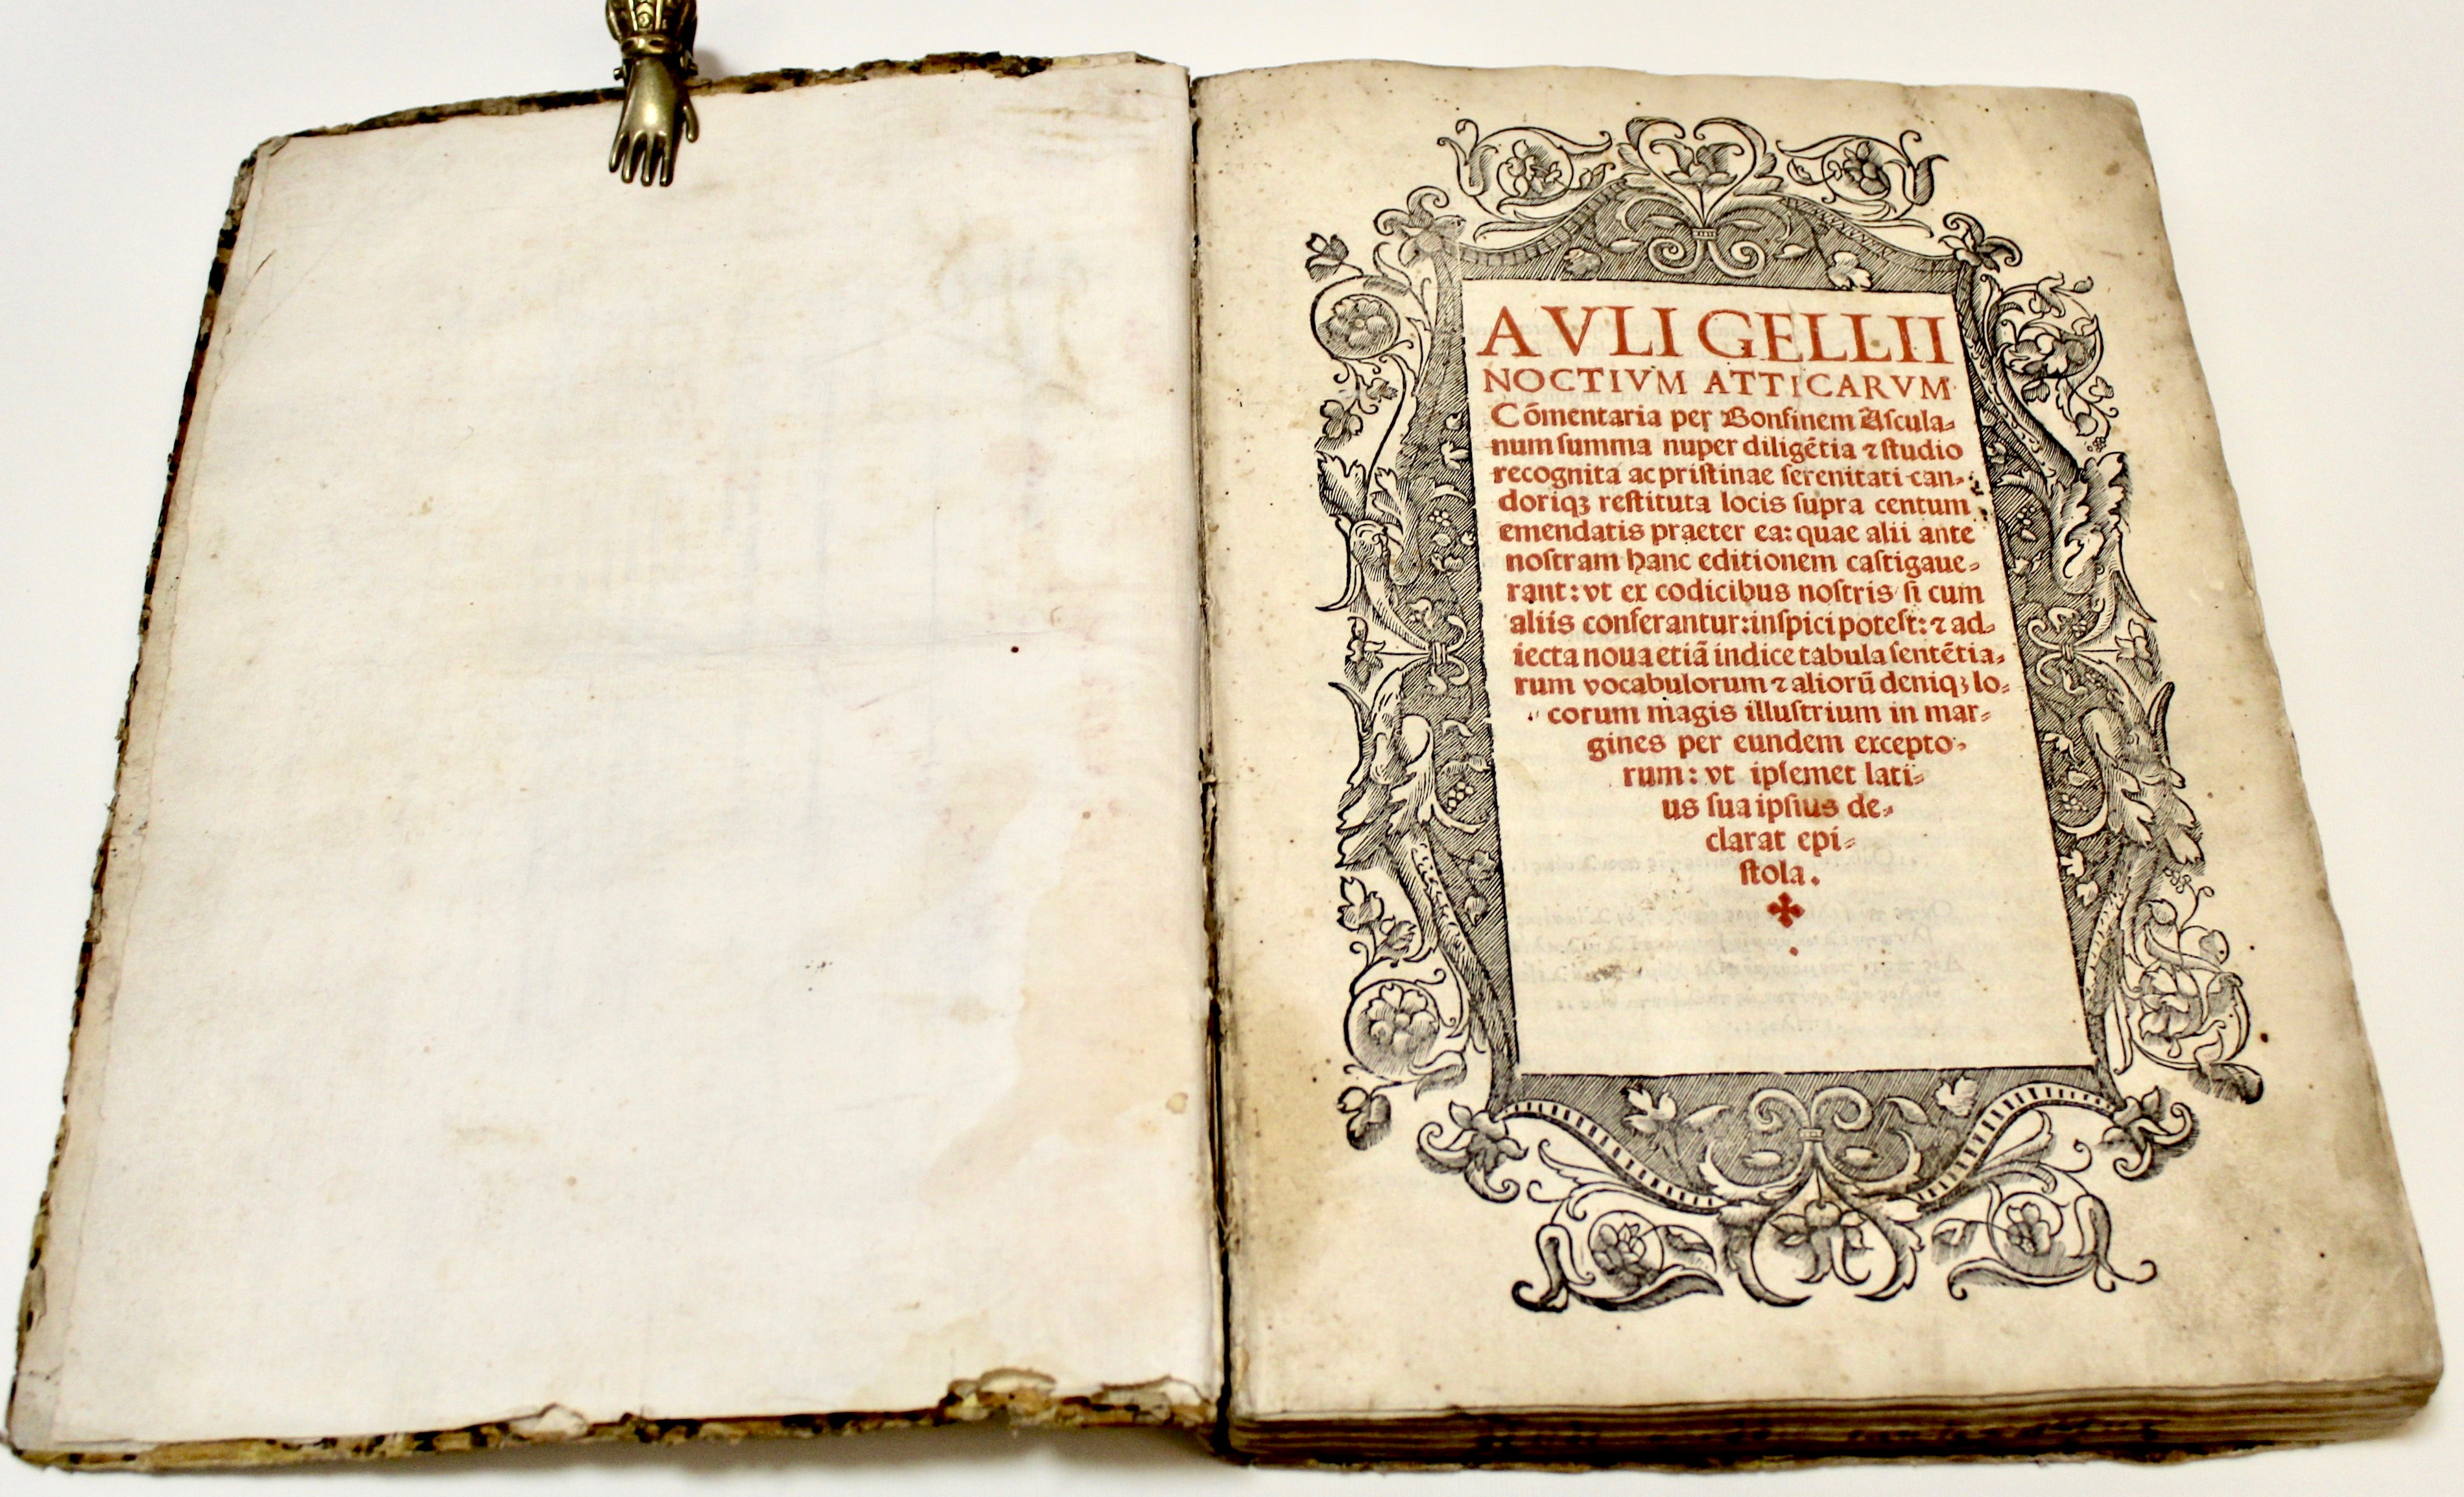 AVLI GELLII
NOCTIVM ATTICARVM
Cōmentaria per Bonfinem Aſcula⸗
num ſumma nuper diligētia ⁊ ſtudio
recognita ac priſtinae ſerenitati can⸗
doriqꝫ reſtituta locis ſupra centum
emendatis praeter ea: quae alii ante
noſtram hanc editionem caſtigaue⸗
rant: vt ex codicibus noſtris ſi cum
aliis conferantur: inſpici poteſt: ⁊ ad⸗
iecta noua etiā indice tabula ſentētia⸗
rum vocabulorum ⁊ aliorū deniqꝫ lo⸗
corum magis illuſtrium in mar⸗
gines per eundem excepto⸗
rum: vt ipſemet lati⸗
us ſua ipſius de⸗
clarat epi⸗
ſtola.